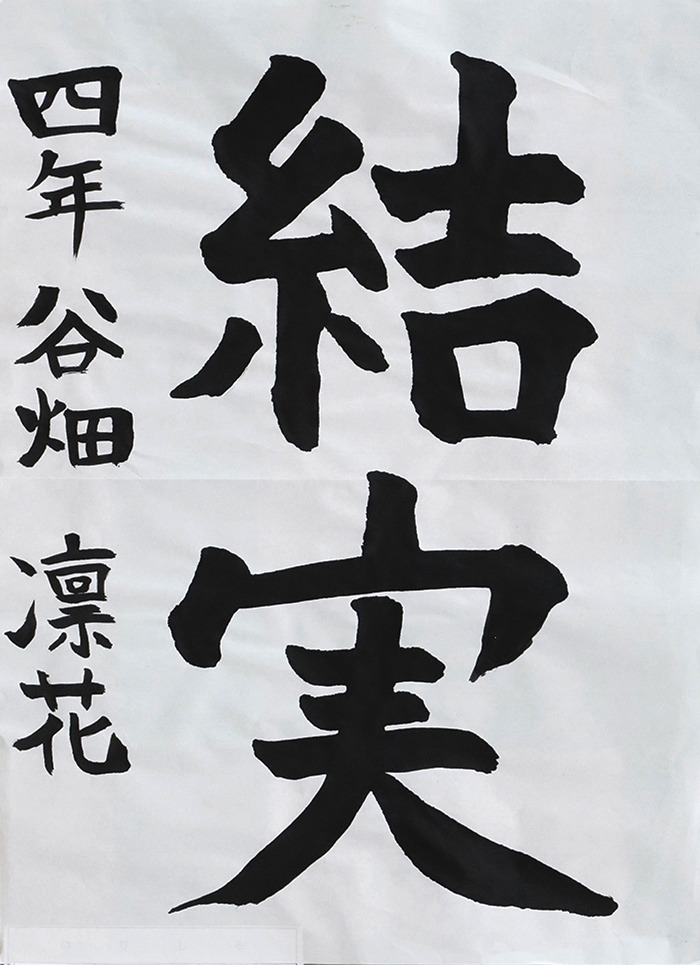 結実
四年 谷畑 凛花